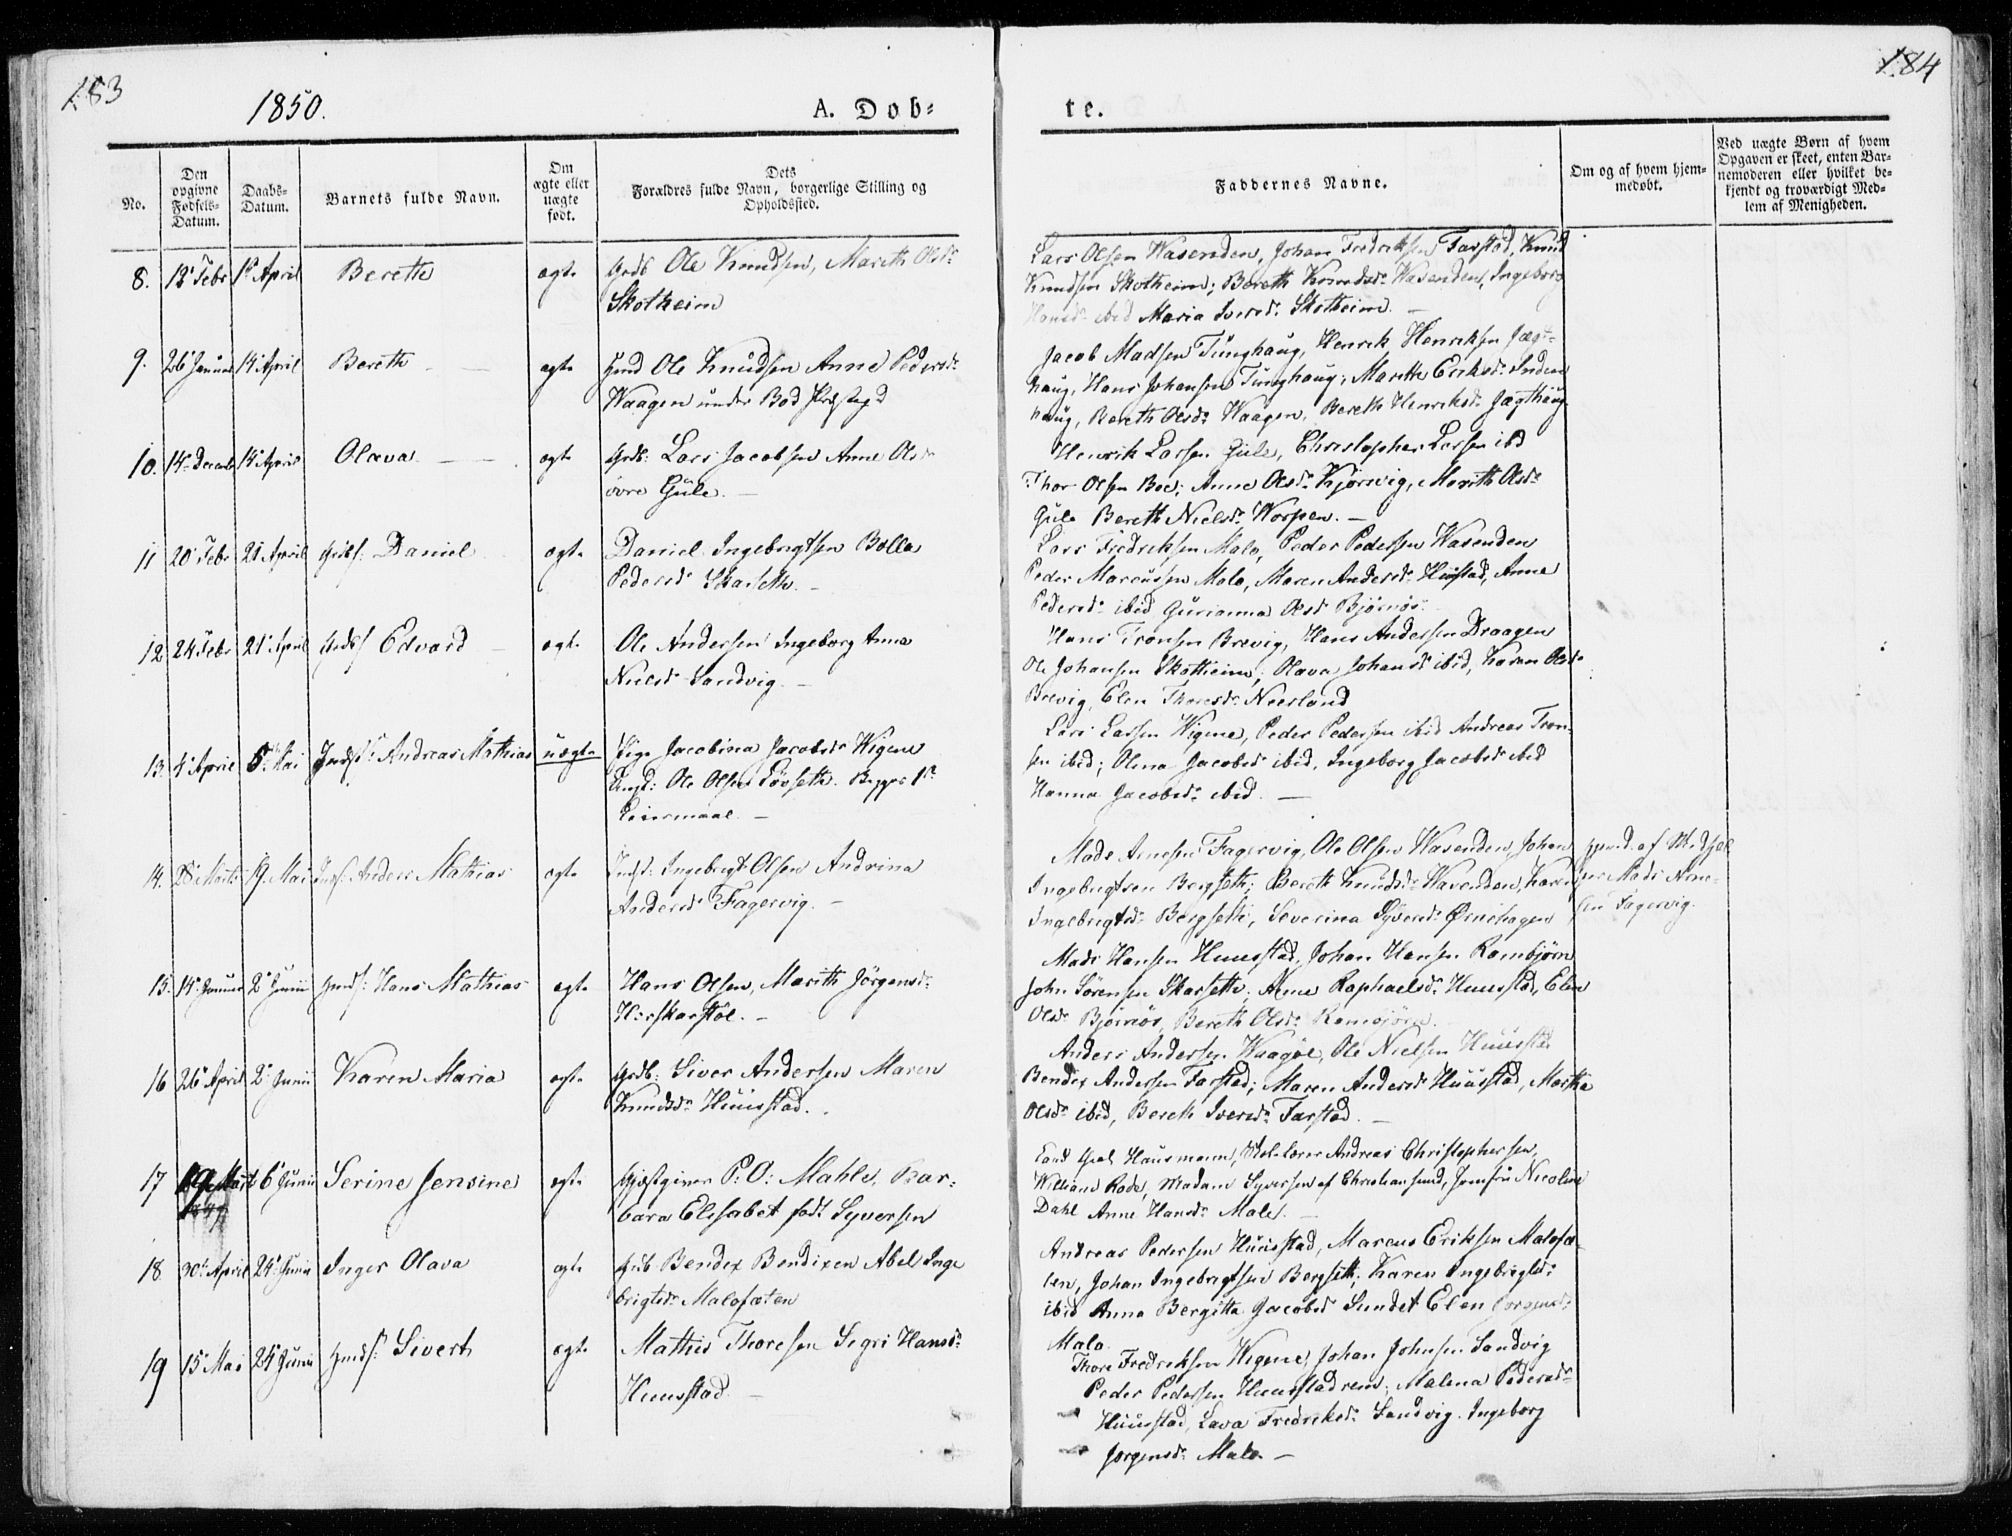 183
1850.
A. Døb=
te.
184
No.
Den opgivne Fødsels-Datum.
Daabs-Datum.
Barnets fulde Navn.
Om ægte eller uægte født.
Dets
Forældres fulde Navn, borgerlige Stilling og
Opholdssted.
Faddernes Navne.
Om og af hvem hjem-
medøbt.
Ved uægte Børn af hvem
Opgaven er skeet, enten Bar-
nemoderen eller hvilket be-
kjendt og troværdigt Med-
lem af Menigheden.
8. 13 Febr 1 April Berethe ægte Grdb Ole Knudsen, Marith Olsdr
Skotheim
Lars Olsen Wasenden, Johan Fredriksen Farstad, Knud
Knudsen Skotheim; Bereth Knudsdr Wasenden, Ingeborg
Hansdr ibid Maria Iversdr Skotheim. —
9. 26 Januar 14 April Bereth ægte Hmd Ole Knudsen Anne Pedersdr
Waagen under Bod Præstegd
Jacob Madsen Tunghaug, Henrik Henriksen Jægt-
haug, Hans Johansen Tunghaug; Marith Eriksdr Inden
haug, Bereth Olsdr Waagen, Bereth Henriksdr Jægthaug
10. 14 Decemb 14 April Olava ægte Grdb: Lars Jacobsen Anne Olsdr
øvre Gule. —
Henrik Larsen Gule, Christopher Larsen ibd
Thor Olsen Boe; Anne Olsdr Kjørsvig, Marith Olsdr
Gule Bereth Nielsdr Worpen. —
11 20 Febr 21 April Daniel ægte Daniel Ingebrigtsen Bolla
Pedersdr Skarseth. —
Lars Fredriksen Malo, Peder Pedersen Wasenden
Peder Marcussen Malo, Maren Andersdr Huustad, Anne
Pedersdr ibid Gurianna Olsd Bjørnøs
12 24 Febr 21 April Edvard ægte Ole Andersen Ingeborg Anna
Nielsdr Sandvig. —
Hans Tronsen Brevig, Hans Andersen Draagen
Ole Johansen Skotheim; Olava Johansdr ibid, Karen Olsdr
Brevig, Elen Thoresdr Neerland
13. 4 April 5 Mai Andreas Mathias uægte Pige Jacobina Jacobsdr Wigene
Ungk: Ole Olsen Løvseth. Begges 1ste
Leiermaal. —
Lars Larsen Wigene, Peder Pedersen ibid Andreas Tron-
sen ibid; Olina Jacobsdr ibid, Ingeborg Jacobsdr ibid
Hanna Jacobsdr ibid. —
14. 28 Marts 19. Mai Anders Mathias ægte Indst: Ingebrigt Olsen Andrina
Andersdr Fagervig. —
Mads Arnesen Fagervig, Ole Olsen Wasenden, Johan
Ingebrigtsen Bergseth; Bereth Knudsdr Wasenden, Karen
Ingebrigtsdr Bergseth, Severina Syversdr Ørnehagen
hjemd. af Medhjel
per Mads Arne-
sen Fagervig.
15. 14 Januar 2 Junii Hans Mathias ægte Hans Olsen, Marith Jørgensdr
Harskarstøl. —
Mads Hansen Huustad, Johan Hansen Rambjøra
John Sørensen Skarseth; Anne Raphaelsdr Huustad, Elen
Olsdr Bjørnøs, Bereth Olsdr Rambjøra.
16 26 April 2 Junii Karen Maria ægte Grdb: Siver Andersen Maren
Knudsdr Huustad.
Anders Andersen Waagøe, Ole Nielsen Huustad
Bendix Andersen Farstad; Maren Andersdr Huustad, Martha
Olsdr ibid, Bereth Iversdr Farstad. —
17 19 Marts 6 Junii Serine Jensine ægte Gjæstgiver P: O: Mahle, Bar=
bara Elisabet født Syversen
Cand theol Hausmann, Skolelærer Andreas Christophersen,
William Rode, Madam Syversen af Christiansund, Jomfru Nicoline
Dahl Anne Hansdr Male. —
18 30 April 24 Junii Inger Olava ægte Bendix Bendixen Abel Inge
brigtsdr Malosæten
Andreas Pedersen Huustad, Marcus Eriksen Malosæ-
ten, Johan Ingebrigtsen Bergseth; Karen Ingebrigtsdr
ibid Anna Bergitte Jacobsd Sundet Elen Jørgensdr
Malo.
19 15 Mai 24 Junii Sivert ægte Mathis Thoresen Segri Hansdr
Huustad —
Thore Fredriksen Wigene, Johan Johnsen Sandvig
Peder Pedersen Huustadrem; Malena Pedersdr
Huustad, Lava Fredriksdr Sandvig. Ingeborg
Jørgensdr Malo. —